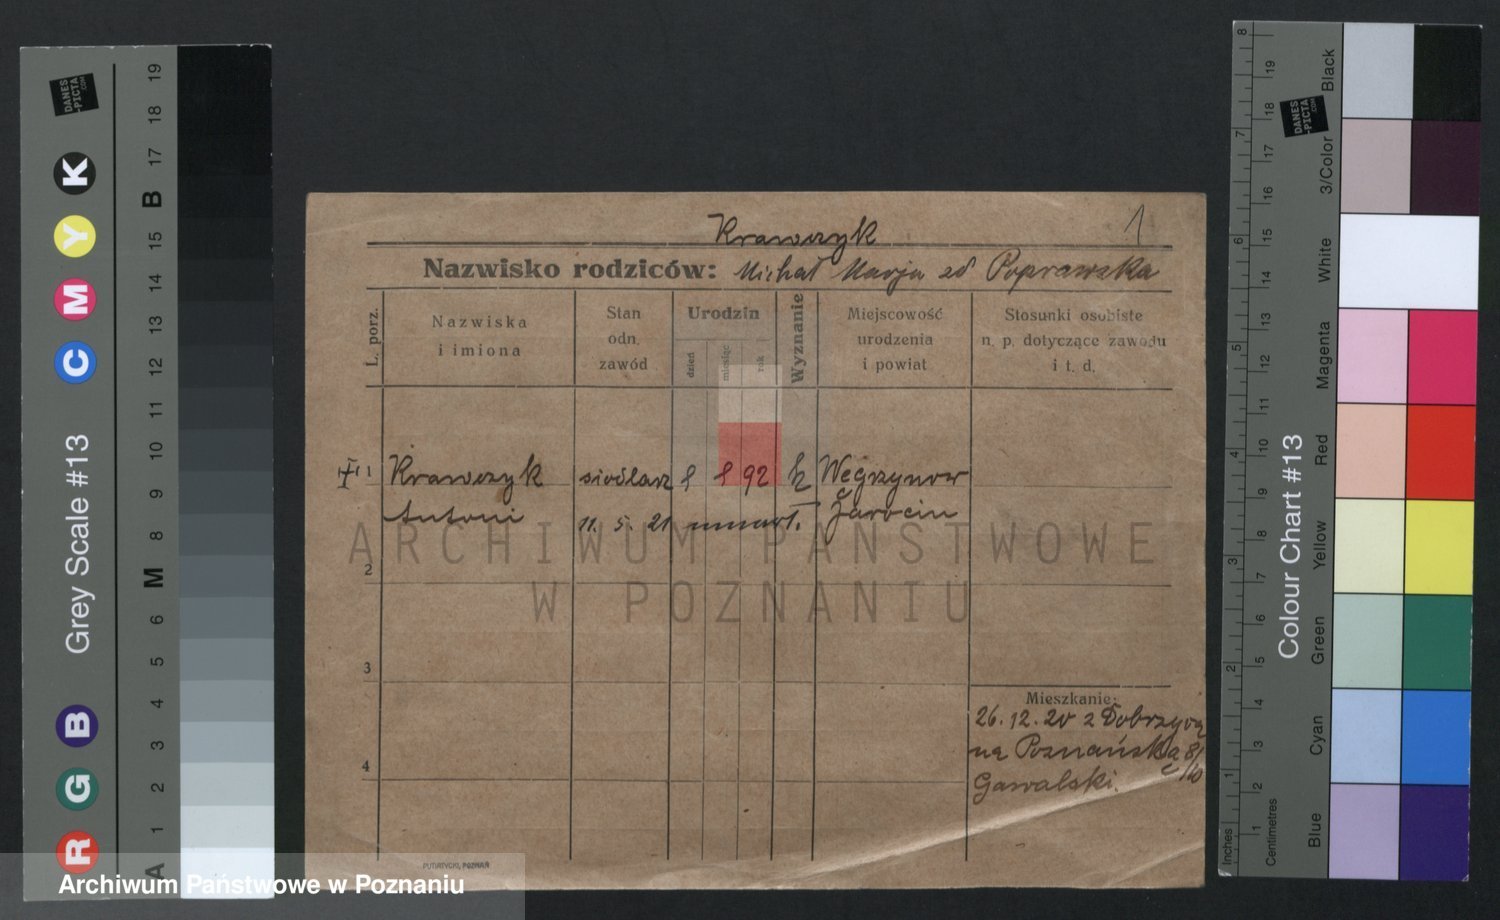 Krawczyk
1
Nazwisko rodziców: Michał Marja zd Poprawska
L. porz.
Nazwiska
i imiona
Stan
odn.
zawód
Urodzin
dzień
miesiąc
rok
Wyznanie
Miejscowość
urodzenia
i powiat
Stosunki osobiste
n. p. dotyczące zawodu
i t. d.
1 Krawczyk siodlarz 92 k Węgrzynow
Antoni 11. 5. 21 umarł. Jarocin
2
3
4
Mieszkanie:
26.12.20 z Dobrzyca
na Poznańską 8/10
Gawalski.
PUTIATYCKI, POZNAŃ
ARCHIWUM PAŃSTWOWE
W POZNANIU
Archiwum Państwowe w Poznaniu
Grey Scale #13
R G B C M Y K
A 1 2 3 4 5 6 M 8 9 10 11 12 13 14 15 B 17 18 19
DANES
-PICTA
.COM
Colour Chart #13
Blue
Cyan
Green
Yellow
Red
Magenta
White
3/Color
Black
Inches
1 2 3 4 5 6 7 8
Centimetres
1 2 3 4 5 6 7 8 9 10 11 12 13 14 15 16 17 18 19
DANES
-PICTA
.COM